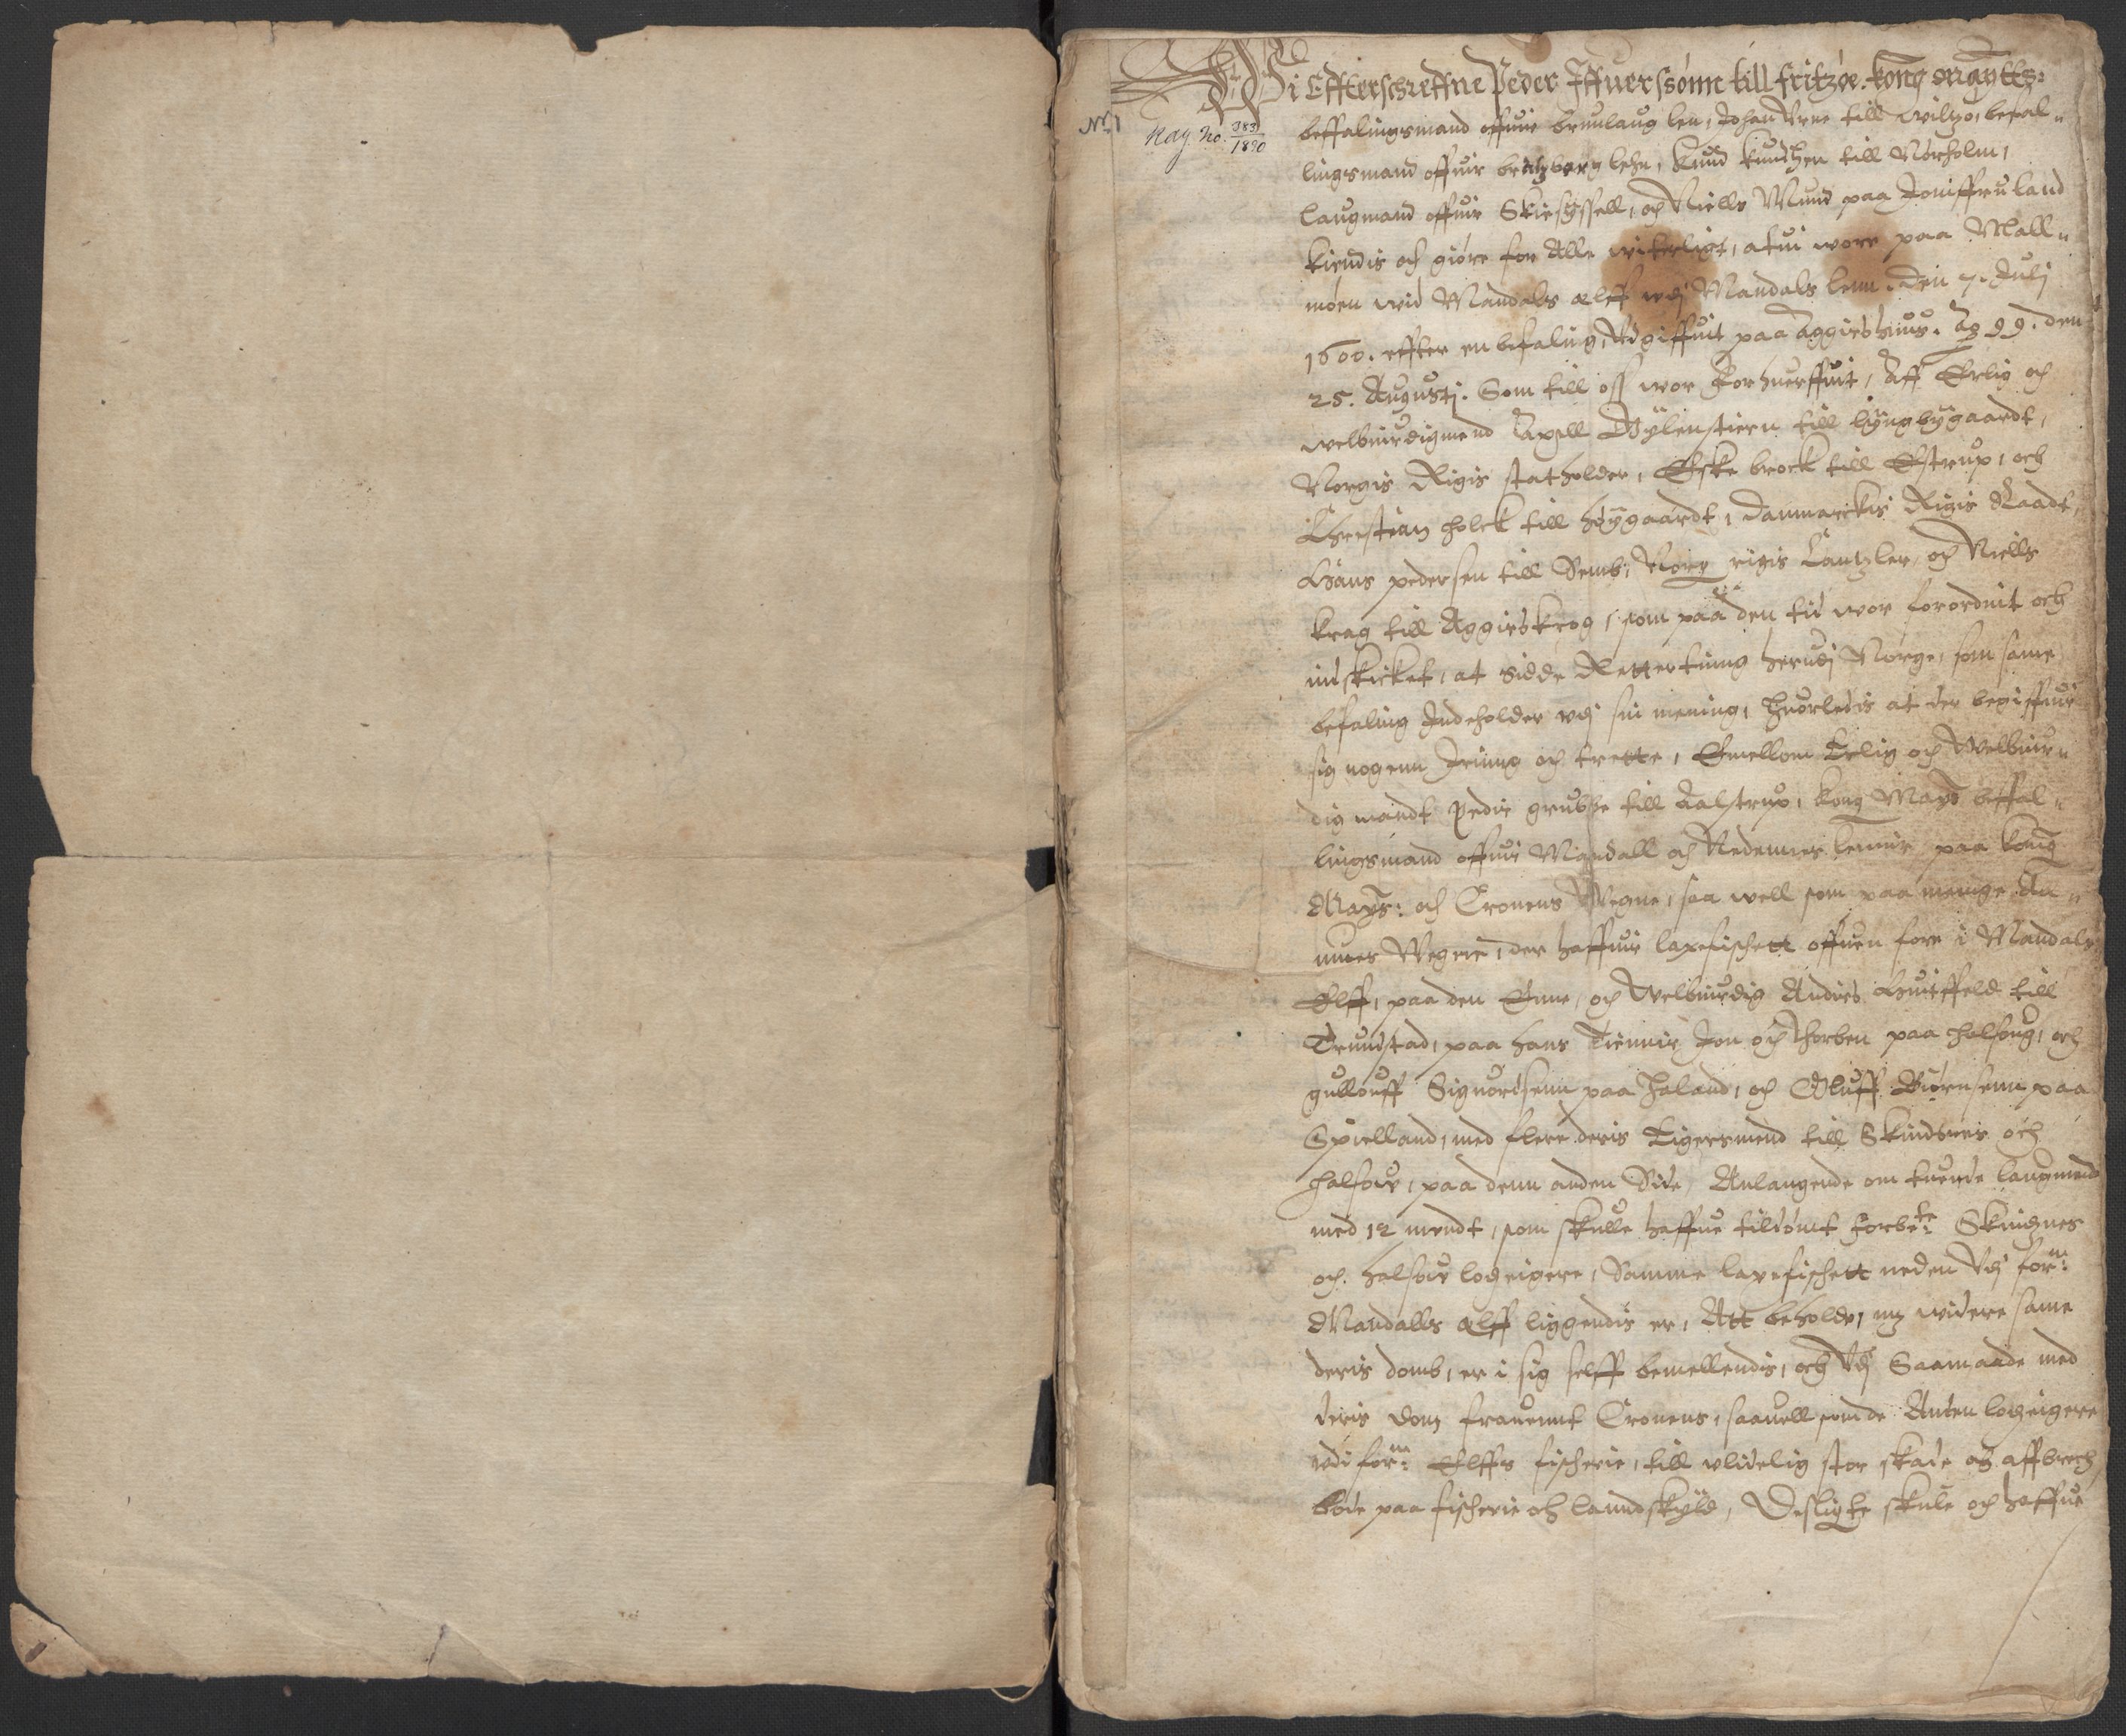 Wi Effterschreffne Peder Iffuerssönn till fritzøe. kong: Maÿtts:
N: 1
Kay. No. 383/1890
beffalingsmand offuir brunlaug len, Johan Vrne till wiltzo, befal„
lingsmand offuir bratzberg lehn, Knud knudtzen till Nørholm,
laugmand offuir Skiesÿssell, och Niells Mund paa Jomffruland
kiendis och giøre for Alle witerligt, at wi wore paa Mall„
møen wid Mandals elff vdj Mandals lenn. Den 7. Julj
1600. effter en befaling, Vdgiffuit paa Aggershuus. Ao 99. den
25. Augustj. Som till oss wor forhuerffuit, Aff Erlig och
welbiurdigmend Axell Gÿlenstiern till lÿngbÿgaardt,
Norgis Rigis statholder, Eske brock till Estrup, och
Christian holck till høÿgaardt, Danmarckis Rigis Raadt,
Hans pedersen till Semb, Norg rigis Cantzler, och Niells
krag till Aggerskrog, som paa den tid wor forordnit och
indskicket, at sidde Retterting herudj Norge, som same
befaling Indeholder vdj sin mening, huorledis at der begiffuir
sig nogenn Irring och trette, Emellom Erlig och Welbiur„
dig mandt Peder grubbe till Aalstrup, kong Maÿts beffal„
lingsmand offuir Mandall och Nedennes lenner paa kong
Maÿts: och Cronens Wegne, saa well som paa menge An„
nners Wegne, der haffuir laxefischett offuen fore i Mandals
Elff, paa den Enne, och Welbiurdig Andres Huitffeld till
Trundstad, paa hans Tienner Jon och Torben paa halsoug, och
gullouff Siguordsenn paa haland, och Oluff Biørnsenn paa
Spielland, med flere deris Eigersmend till Skindsnes och
halsow, paa denn anden Side, Anlangende om tuende laugmend
med 12 mendt, som skulle haffue tildømt forbete: Skindznes
och halsow lodzeigere, Samme laxefischett neden Vdj form:
Mandalls elff liggendis er, Att beholde, mz widere same
deris domb, er i sig selff bemellendis, och Vdj Saamaade med
deris dom frauennt Cronens, saauell som de Anden lodzeigere
vdi form: Elffs fischerie, till vlidelig stor skade och affbreck
bode paa fischerie och landskÿld, Desligiste skule och haffue